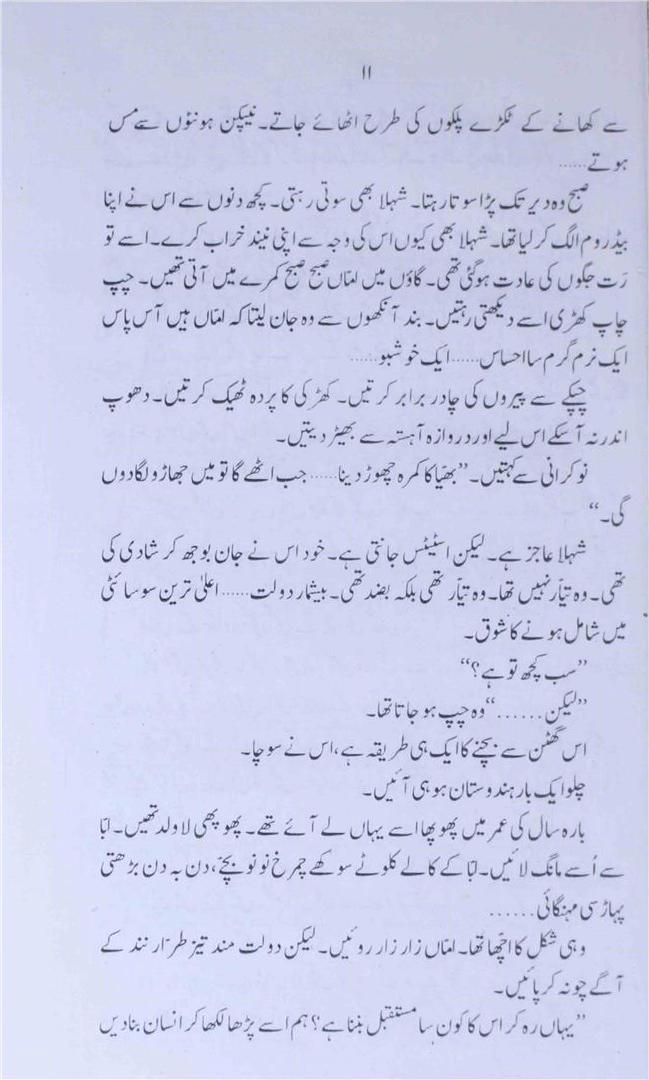 ۱۱
سے کھانے کے ٹکڑے پلکوں کی طرح اٹھائے جاتے۔ نیپکن ہونٹوں سے مس
ہوتے......
صبح وہ دیر تک پڑا سوتا رہتا۔ شہلا بھی سوتی رہتی۔ کچھ دنوں سے اس نے اپنا
بیڈ روم الگ کر لیا تھا۔ شہلا بھی کیوں اس کی وجہ سے اپنی نیند خراب کرے۔ اسے تو
رَت جگوں کی عادت ہوگئی تھی۔ گاؤں میں امّاں صبح صبح کمرے میں آتی تھیں۔ چپ
چاپ کھڑی اسے دیکھتی رہتیں۔ بند آنکھوں سے وہ جان لیتا کہ امّاں ہیں آس پاس
ایک نرم گرم سا احساس...... ایک خوشبو......
چپکے سے پیروں کی چادر برابر کرتیں۔ کھڑکی کا پردہ ٹھیک کرتیں۔ دھوپ
اندر نہ آسکے اس لیے اور دروازہ آہستہ سے بھیڑ دیتیں۔
نوکرانی سے کہتیں۔ ”بھیّا کا کمرہ چھوڑ دینا...... جب اٹھے گا تو میں جھاڑو لگادوں
گی۔“
شہلا عاجز ہے۔ لیکن اسٹیٹس جانتی ہے۔ خود اس نے جان بوجھ کر شادی کی
تھی۔ وہ تیاّر نہیں تھا۔ وہ تیاّر تھی بلکہ بضد تھی۔ بیشمار دولت...... اعلیٰ ترین سوسائٹی
میں شامل ہونے کا شوق۔
”سب کچھ تو ہے؟“
”لیکن......“ وہ چپ ہو جاتا تھا۔
اس گھٹن سے بچنے کا ایک ہی طریقہ ہے، اس نے سوچا۔
چلو ایک بار ہندوستان ہو ہی آئیں۔
بارہ سال کی عمر میں پھوپھا اسے یہاں لے آئے تھے۔ پھوپھی لاولد تھیں۔ ابّا
سے اُسے مانگ لائیں۔ ابّا کے کالے کلوٹے سوکھے چمرخ نو نو بچّے، دن بہ دن بڑھتی
پہاڑ سی مہنگائی......
وہی شکل کا اچّھا تھا۔ امّاں زار زار روئیں۔ لیکن دولت مند تیز طرّار نند کے
آگے چوں نہ کر پائیں۔
”یہاں رہ کر اس کا کون سا مستقبل بننا ہے؟ ہم اسے پڑھا لکھا کر انسان بنادیں